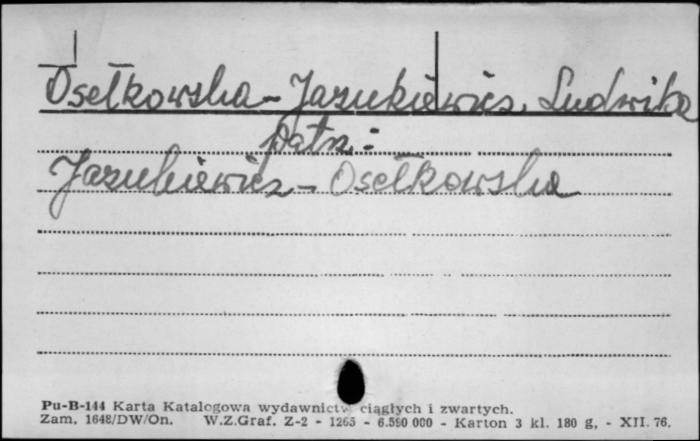 Osełkowska-Jazukiewicz, Ludwika
patrz:
Jazukiewicz-Osełkowska
Pu-B-144 Karta Katalogowa wydawnictw ciągłych i zwartych.
Zam. 1648/DW/On. W.Z.Graf. Z-2 - 1265 - 6.590 000 - Karton 3 kl. 180 g, - XII. 76.